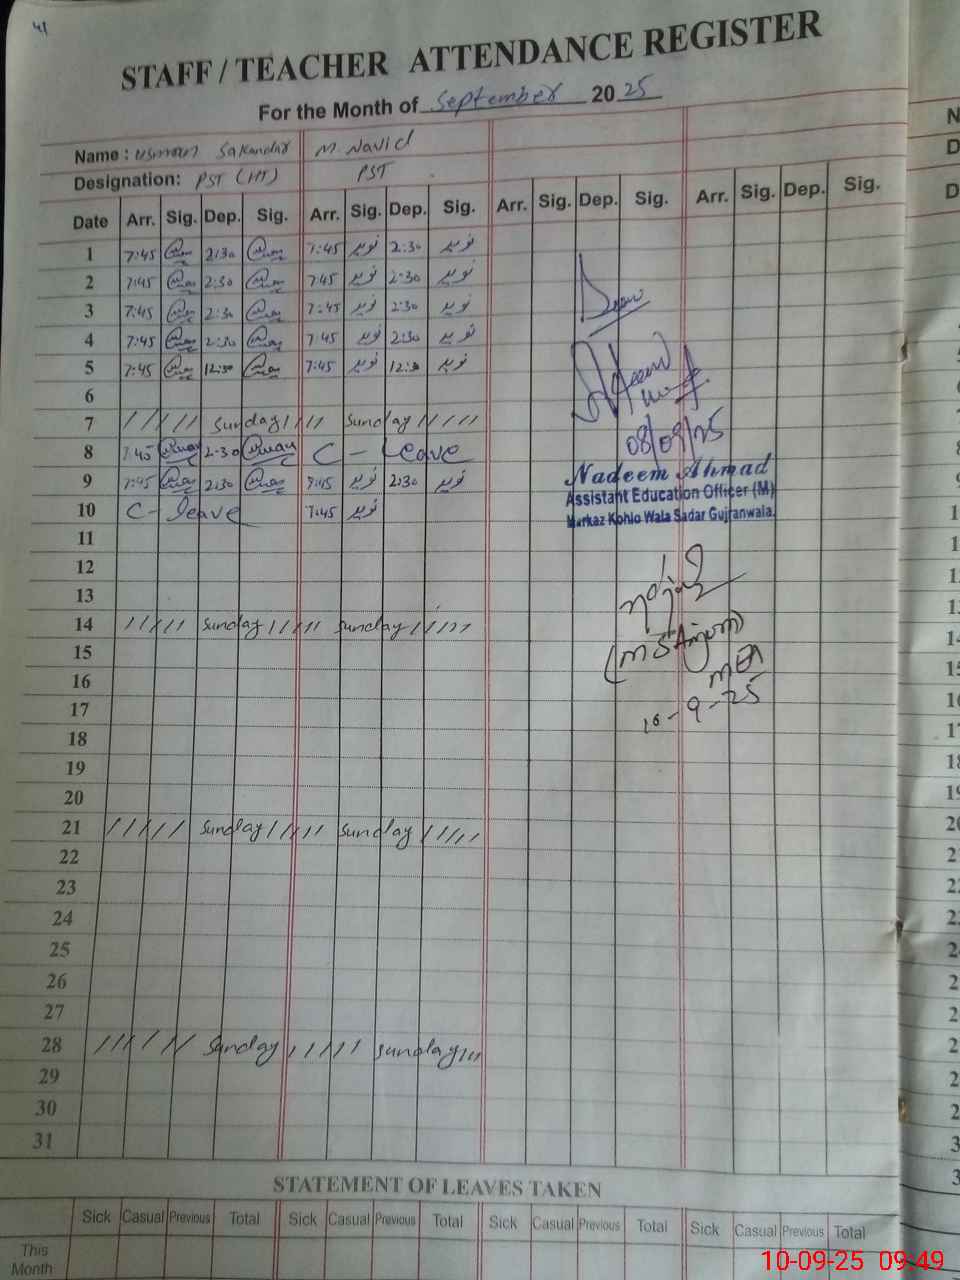 41
STAFF / TEACHER ATTENDANCE REGISTER
For the Month of September 2025
Name : usman Sakandar M. Navid
Designation: PST (HT) PST
Date Arr. Sig. Dep. Sig. Arr. Sig. Dep. Sig. Arr. Sig. Dep. Sig. Arr. Sig. Dep. Sig.
1 7:45 2:30 7:45 نوید 2:30 نوید
2 7:45 2:30 7:45 نوید 2:30 نوید
3 7:45 2:30 7:45 نوید 2:30 نوید
4 7:45 2:30 7:45 نوید 2:30 نوید
5 7:45 12:30 7:45 نوید 12:30 نوید
6
7 / / / / / Sunday / / / / Sunday / / / / /
8 7:45 2:30 C - Leave
08/09/25
9 7:45 2:30 7:45 نوید 2:30 نوید
Nadeem Ahmad
Assistant Education Officer (M)
Markaz Kohlo Wala Sadar Gujranwala.
10 C - leave 7:45 نوید
11
12
13
14 / / / / / Sunday / / / / / Sunday / / / / /
15
(M S Anjum)
16
MEA
17
10-9-25
18
19
20
21 / / / / / Sunday / / / / / Sunday / / / / /
22
23
24
25
26
27
28 / / / / / / Sunday / / / / / Sunday / / /
29
30
31
STATEMENT OF LEAVES TAKEN
Sick Casual Previous Total Sick Casual Previous Total Sick Casual Previous Total Sick Casual Previous Total
This
Month
10-09-25 09:49